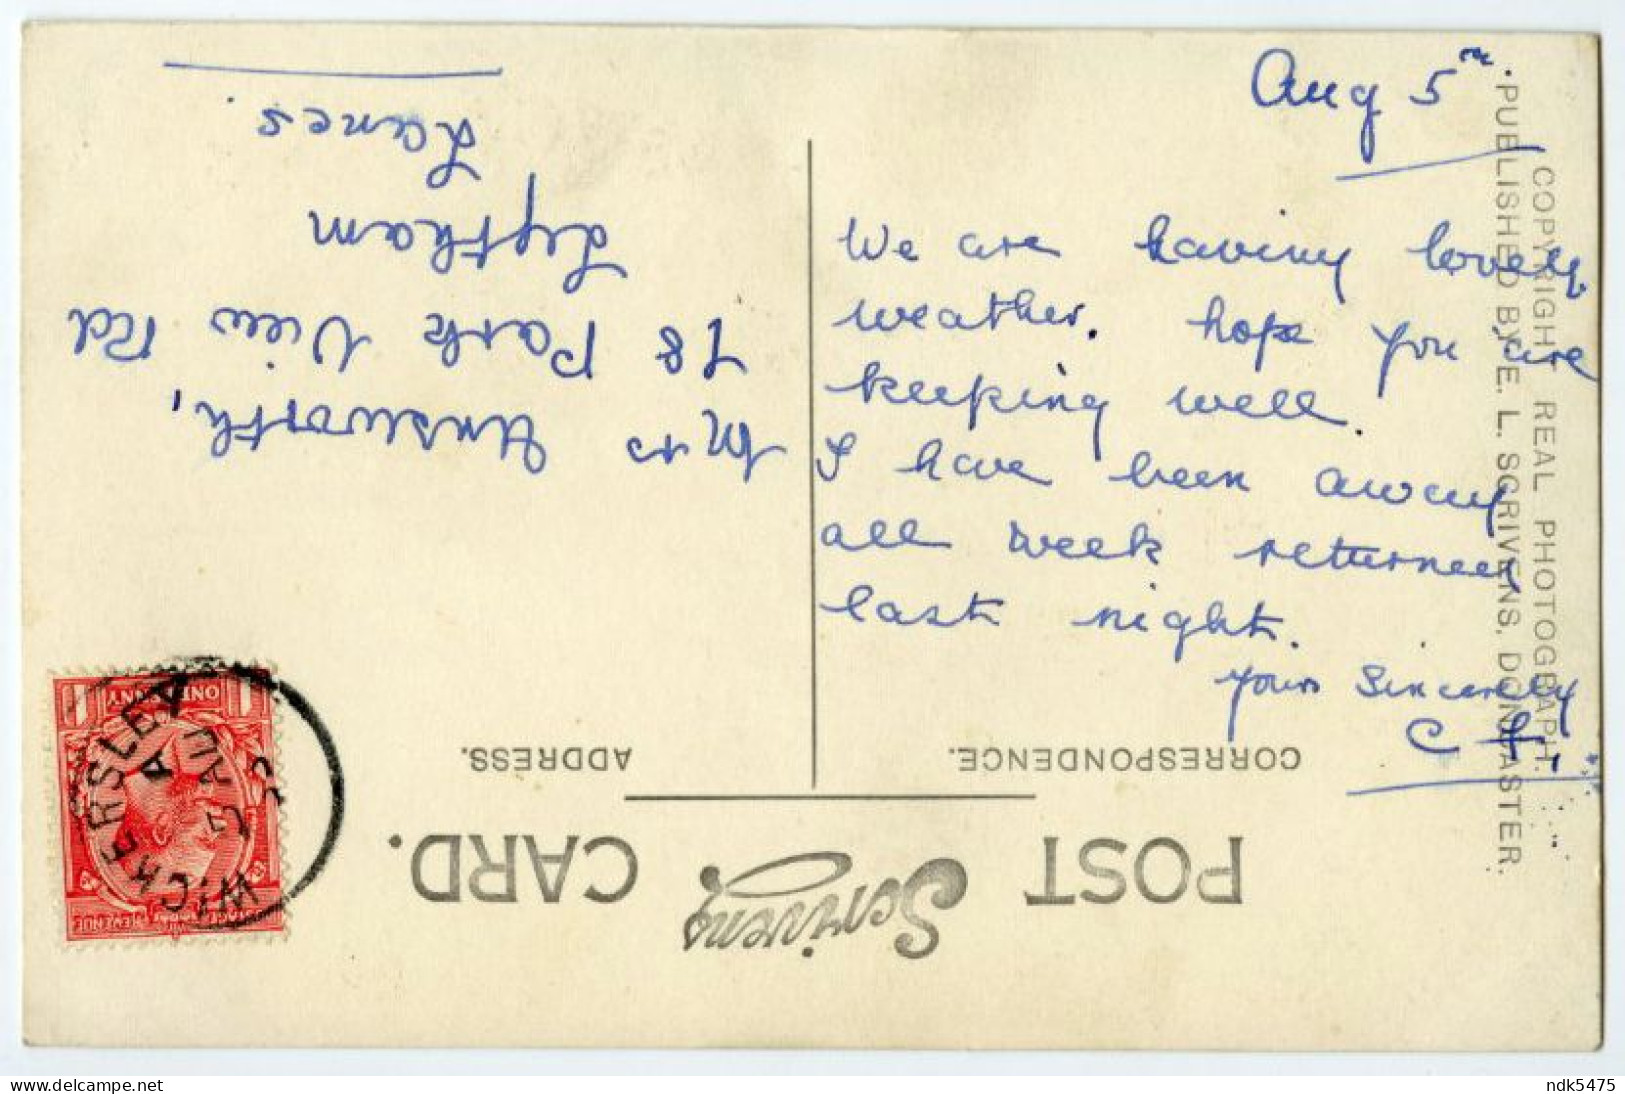 Aug 5th
We are having lovely
weather. hope you are
keeping well.
I have been away
all week returned
last night.
Yours Sincerely
C
POST CARD.
Scrivens
CORRESPONDENCE.
ADDRESS.
Mrs Unsworth,
78 Park View Rd
Lytham
Lancs.
COPYRIGHT REAL PHOTOGRAPH.
PUBLISHED BY E. L. SCRIVENS, DONCASTER.
WICKERSLEY
A
AU
ONE PENNY
POSTAGE REVENUE
delcampe.net
ndk5475